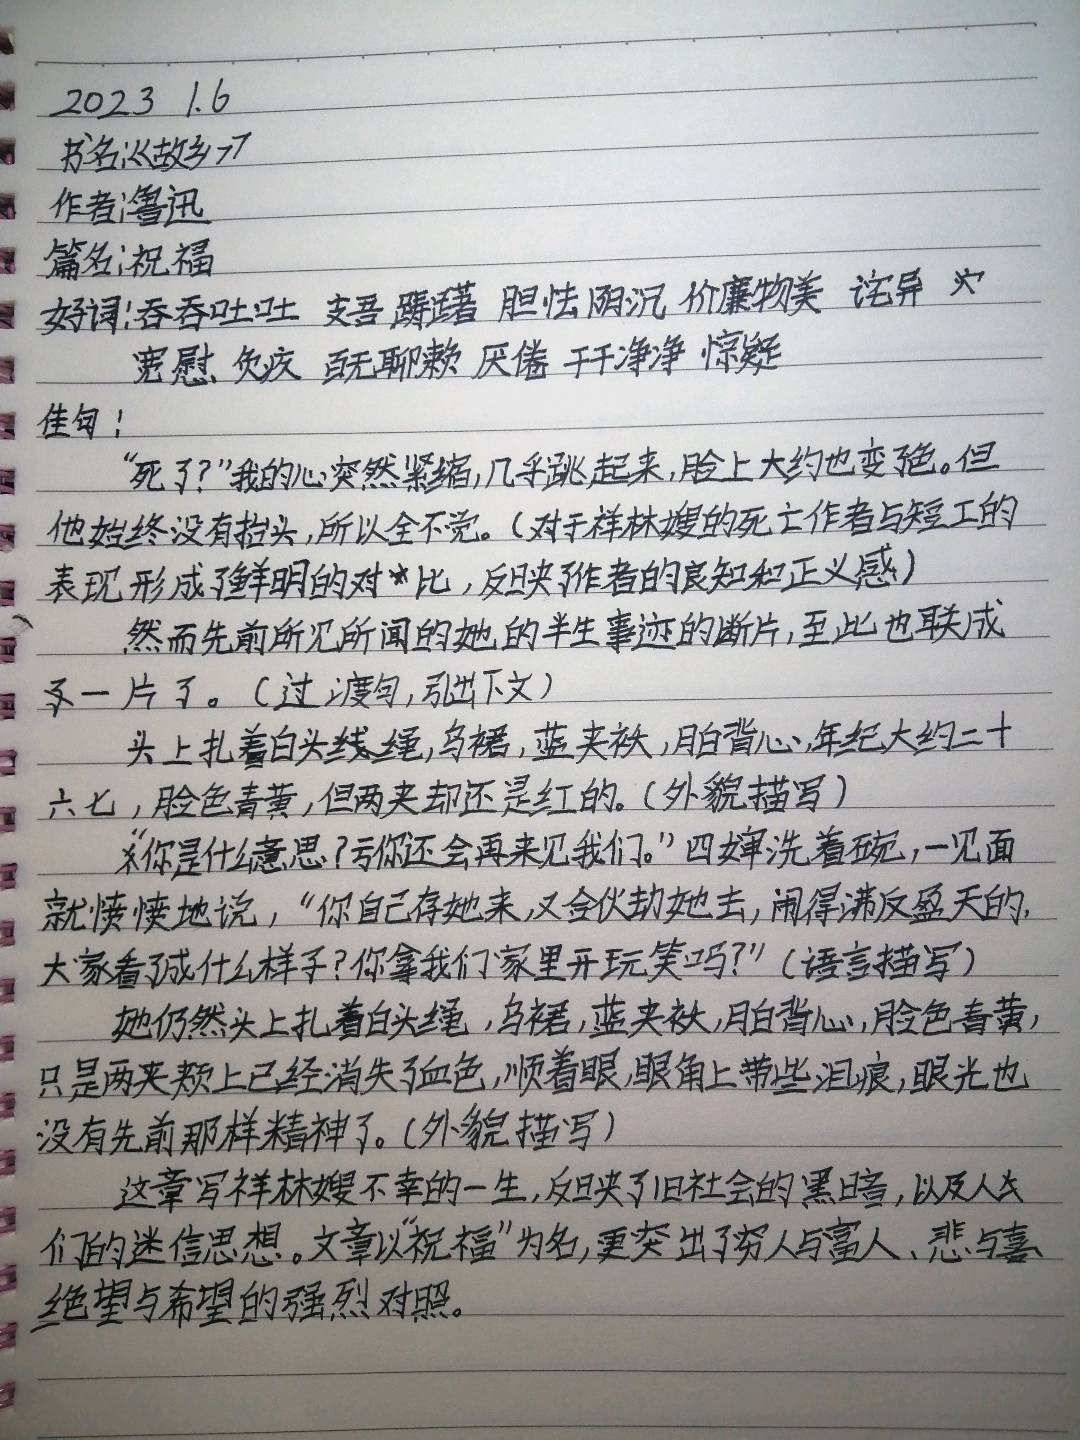 2023 1.6
书名:《故乡》
作者:鲁迅
篇名:祝福
好词:吞吞吐吐 支吾 踌躇 胆怯 阴沉 价廉物美 诧异
宽慰 负疚 百无聊赖 厌倦 干干净净 惊疑
佳句:
“死了?”我的心突然紧缩,几乎跳起来,脸上大约也变了色。但
他始终没有抬头,所以全不觉。(对于祥林嫂的死亡作者与短工的
表现形成了鲜明的对比,反映了作者的良知和正义感)
然而先前所见所闻的她的半生事迹的断片,至此也联成
了一片了。(过渡句,引出下文)
头上扎着白头绳,乌裙,蓝夹袄,月白背心,年纪大约二十
六七,脸色青黄,但两夹却还是红的。(外貌描写)
“你是什么意思?亏你还会再来见我们。”四婶洗着碗,一见面
就愤愤地说,“你自己存她来,又合伙劫她去,闹得沸反盈天的,
大家看了成什么样子?你拿我们家里开玩笑吗?”(语言描写)
她仍然头上扎着白头绳,乌裙,蓝夹袄,月白背心,脸色青黄,
只是两夹颊上已经消失了血色,顺着眼,眼角上带些泪痕,眼光也
没有先前那样精神了。(外貌描写)
这章写祥林嫂不幸的一生,反映了旧社会的黑暗,以及人
们的迷信思想。文章以“祝福”为名,更突出了穷人与富人、悲与喜
绝望与希望的强烈对照。